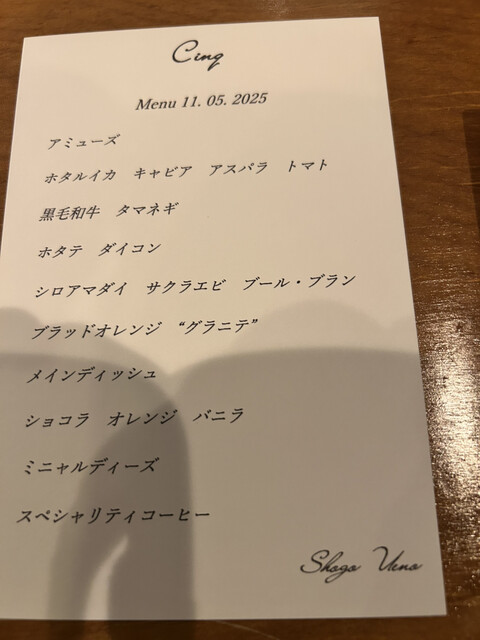 Cinq
Menu 11. 05. 2025
アミューズ
ホタルイカ　キャビア　アスパラ　トマト
黒毛和牛　タマネギ
ホタテ　ダイコン
シロアマダイ　サクラエビ　ブール・ブラン
ブラッドオレンジ　“グラニテ”
メインディッシュ
ショコラ　オレンジ　バニラ
ミニャルディーズ
スペシャリティコーヒー
Shogo Ueno